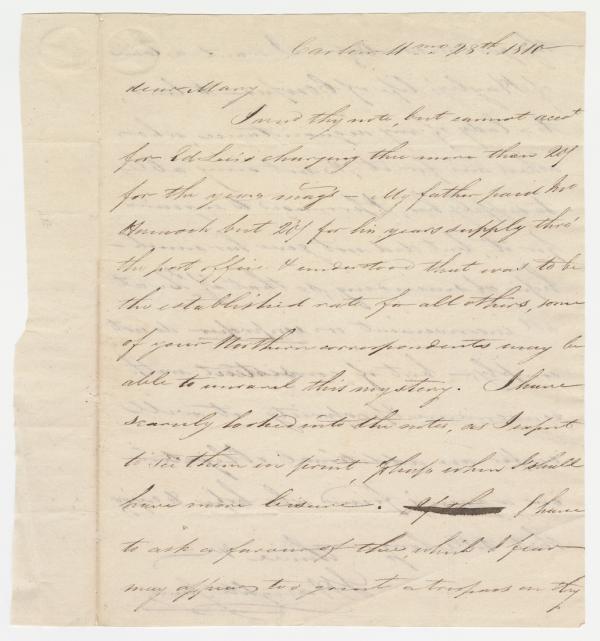 Carlow 11 mo 28th 1810
dear Mary
I recd thy note, but cannot acct
for Ed Luis charging thee more than 20/
for the years mag's – My father paid
but 20/ for his years supply thro'
the post office & understood that was to be
the established rate for all others, some
of your Northern correspondents may be
able to unravel this mystery. I have
scarcely looked into the notes, as I expect
to see them in print, perhaps when I shall
have more leisure. I have
to ask a favour of thee which I fear
may appear too great a trespass on thy